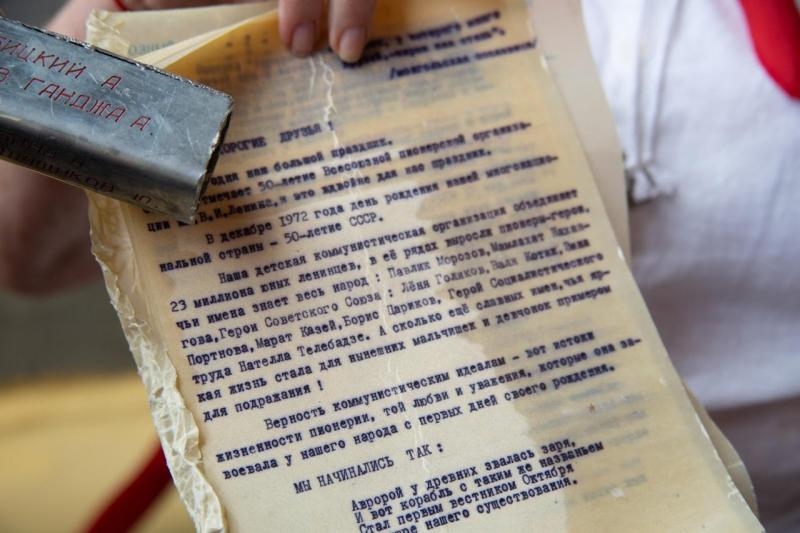 ГАНДЖА А.
/монгольская пословица/
ДОРОГИЕ ДРУЗЬЯ !
наш большой праздник.
отмечает 50-летие Всесоюзной пионерской организа-
ции В.И.Ленина, и это вдвойне для нас праздник.
В декабре 1972 года день рождения нашей многонацио-
нальной страны - 50-летие СССР.
Наша детская коммунистическая организация объединяет
23 миллиона юных ленинцев, в её рядах выросли пионеры-герои,
чьи имена знает весь народ : Павлик Морозов, Мамлахат Нахан-
гова, Герои Советского Союза : Лёня Голиков, Валя Котик, Зина
Портнова, Марат Казей, Борис Цариков, Герой Социалистического
труда Нателла Телебадзе. А сколько ещё славных имен, чья яр-
кая жизнь стала для нынешних мальчишек и девчонок примером
для подражания !
Верность коммунистическим идеалам - вот истоки
жизненности пионерии, той любви и уважения, которые она за-
воевала у нашего народа с первых дней своего рождения.
МЫ НАЧИНАЛИСЬ ТАК :
Авророй у древних звалась заря,
И вот корабль с таким же названьем
Стал первым вестником Октября
нашего существования.